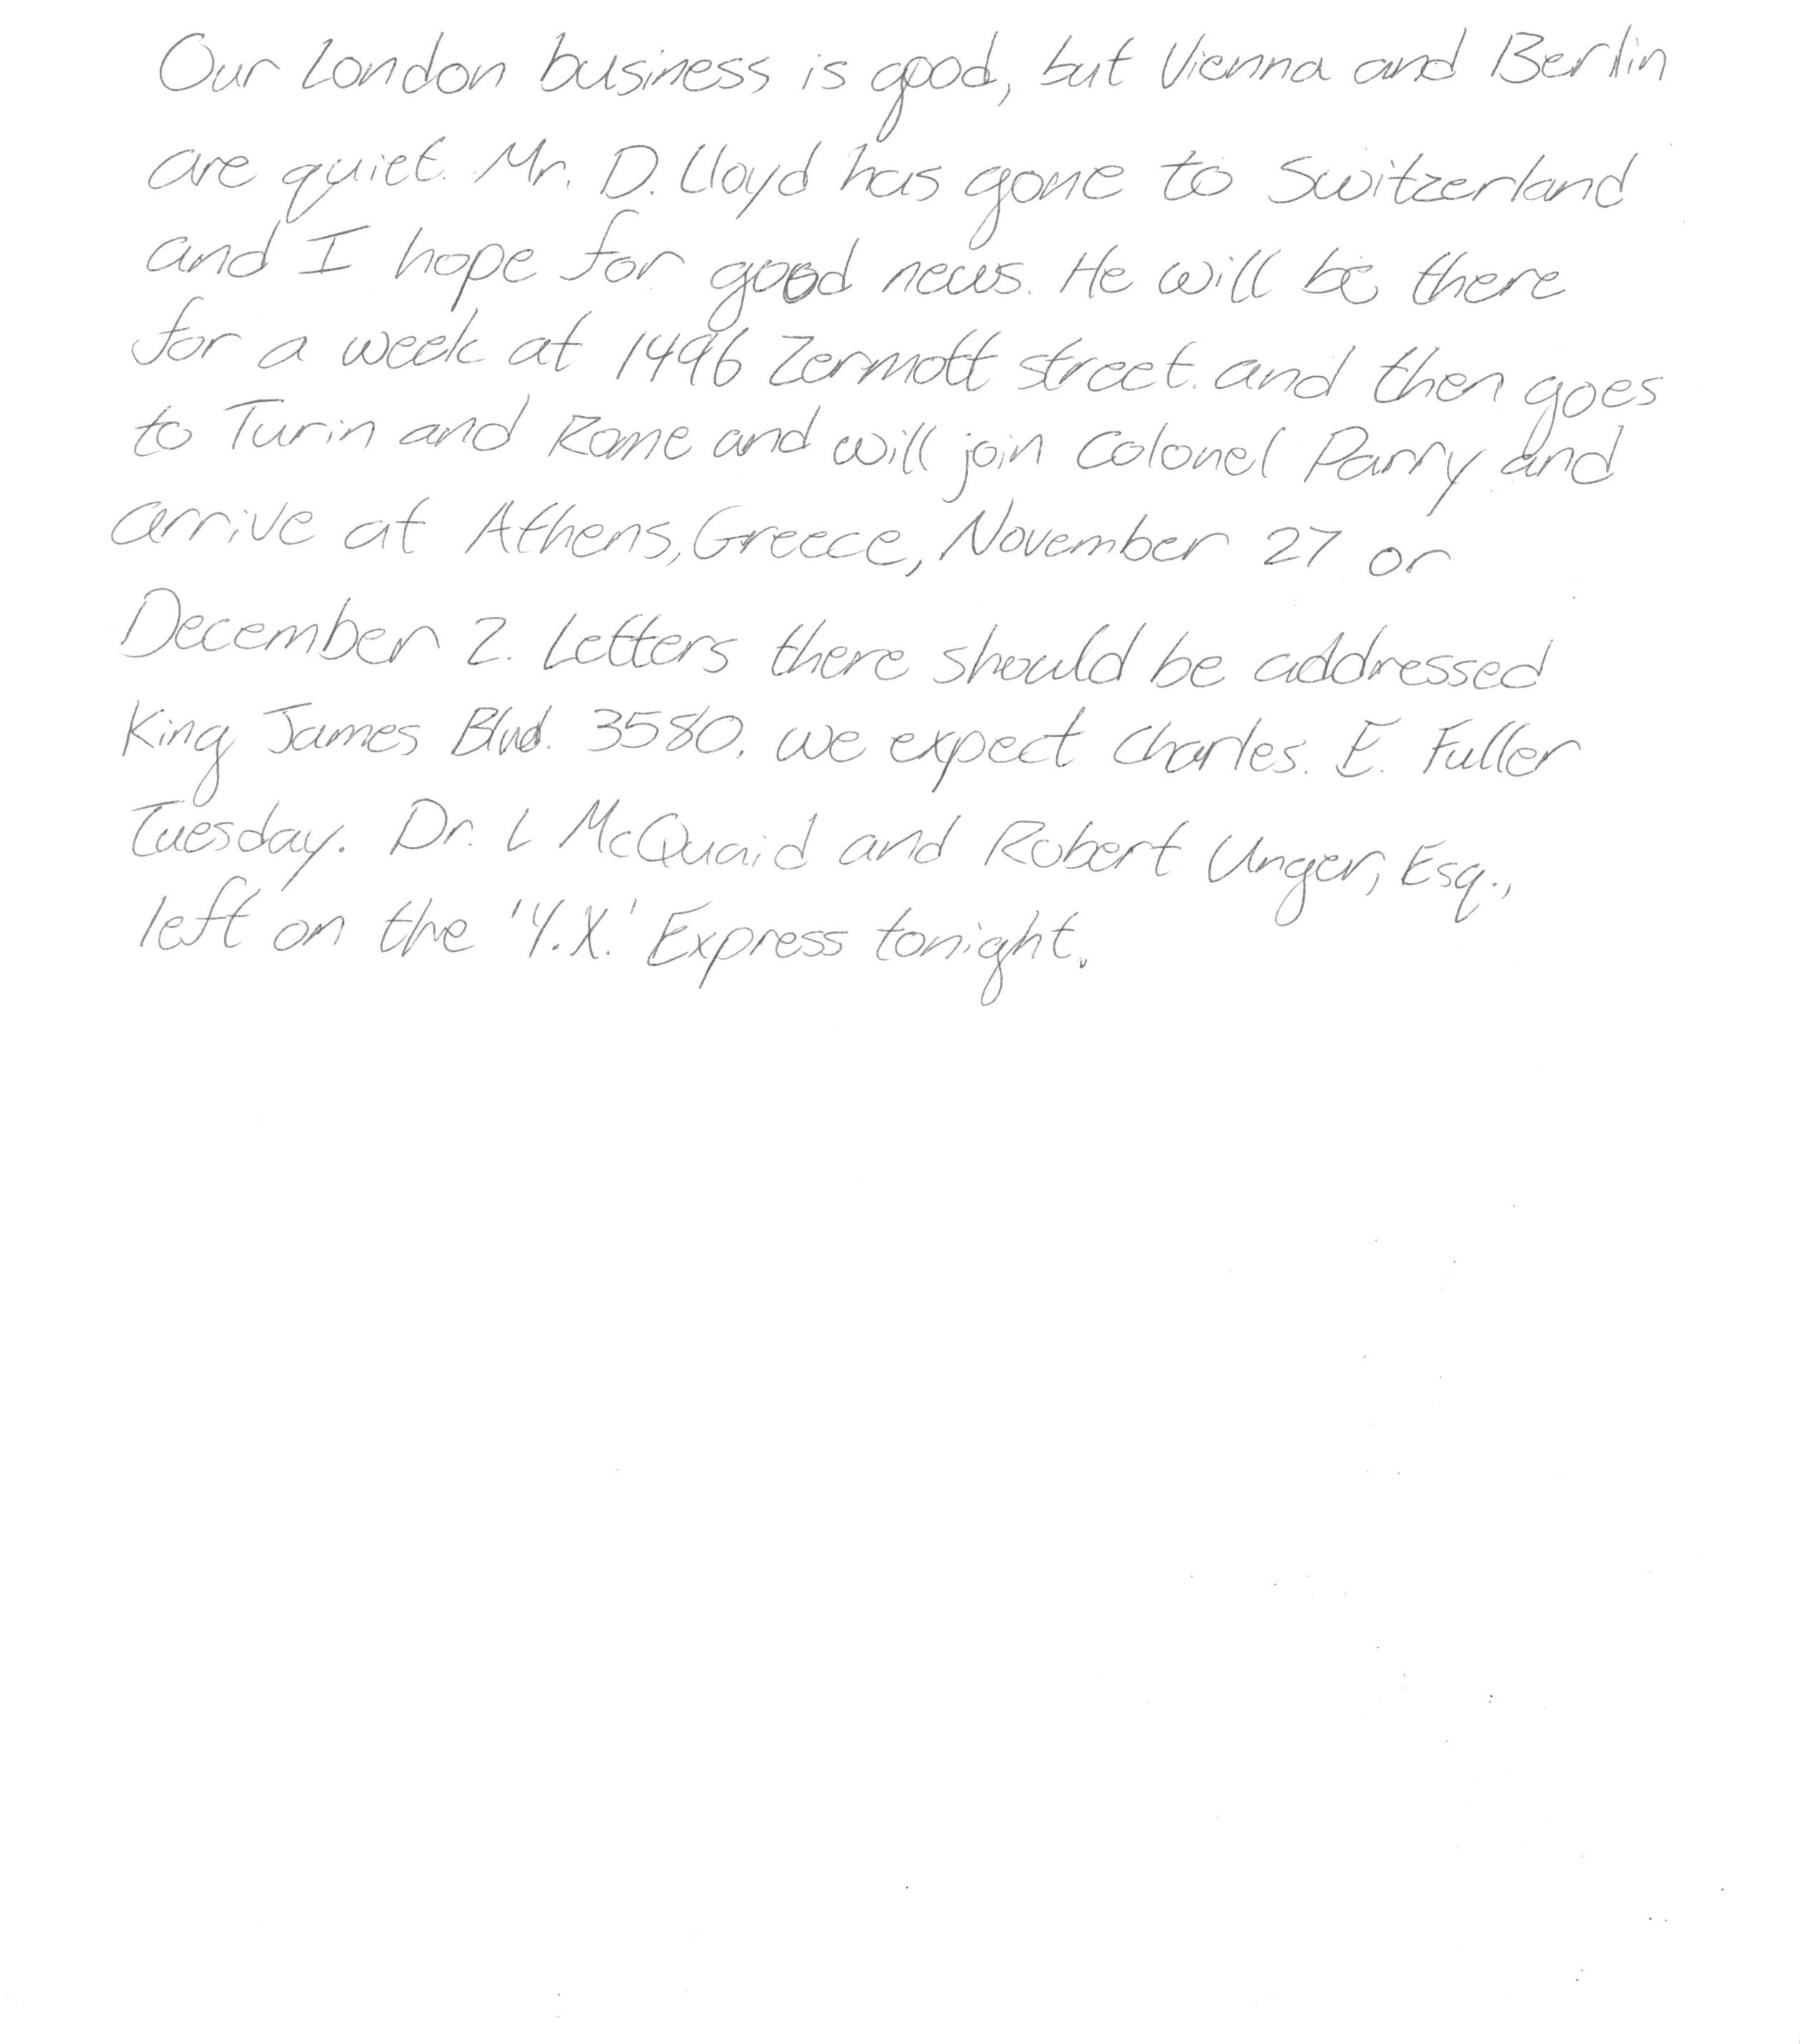 Our London business is good, but Vienna and Berlin
are quiet. Mr. D. Lloyd has gone to Switzerland
and I hope for good news. He will be there
for a week at 1496 Zermott street. and then goes
to Turin and Rome and will join Colonel Parry and
arrive at Athens, Greece, November 27 or
December 2. Letters there should be addressed
King James Blvd. 3580. We expect Charles. E. Fuller
Tuesday. Dr. L McQuaid and Robert Unger, Esq.,
left on the 'Y.X.' Express tonight.